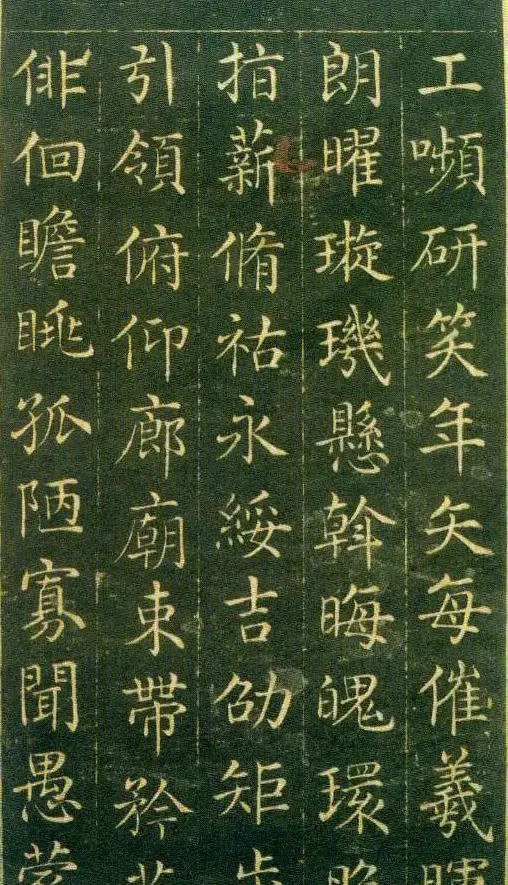 工嚬研笑年矢每催羲暉
朗曜璇璣懸斡晦魄環照
指薪脩祜永綏吉劭矩步
引領俯仰廊廟束帶矜莊
俳佪瞻眺孤陋寡聞愚蒙